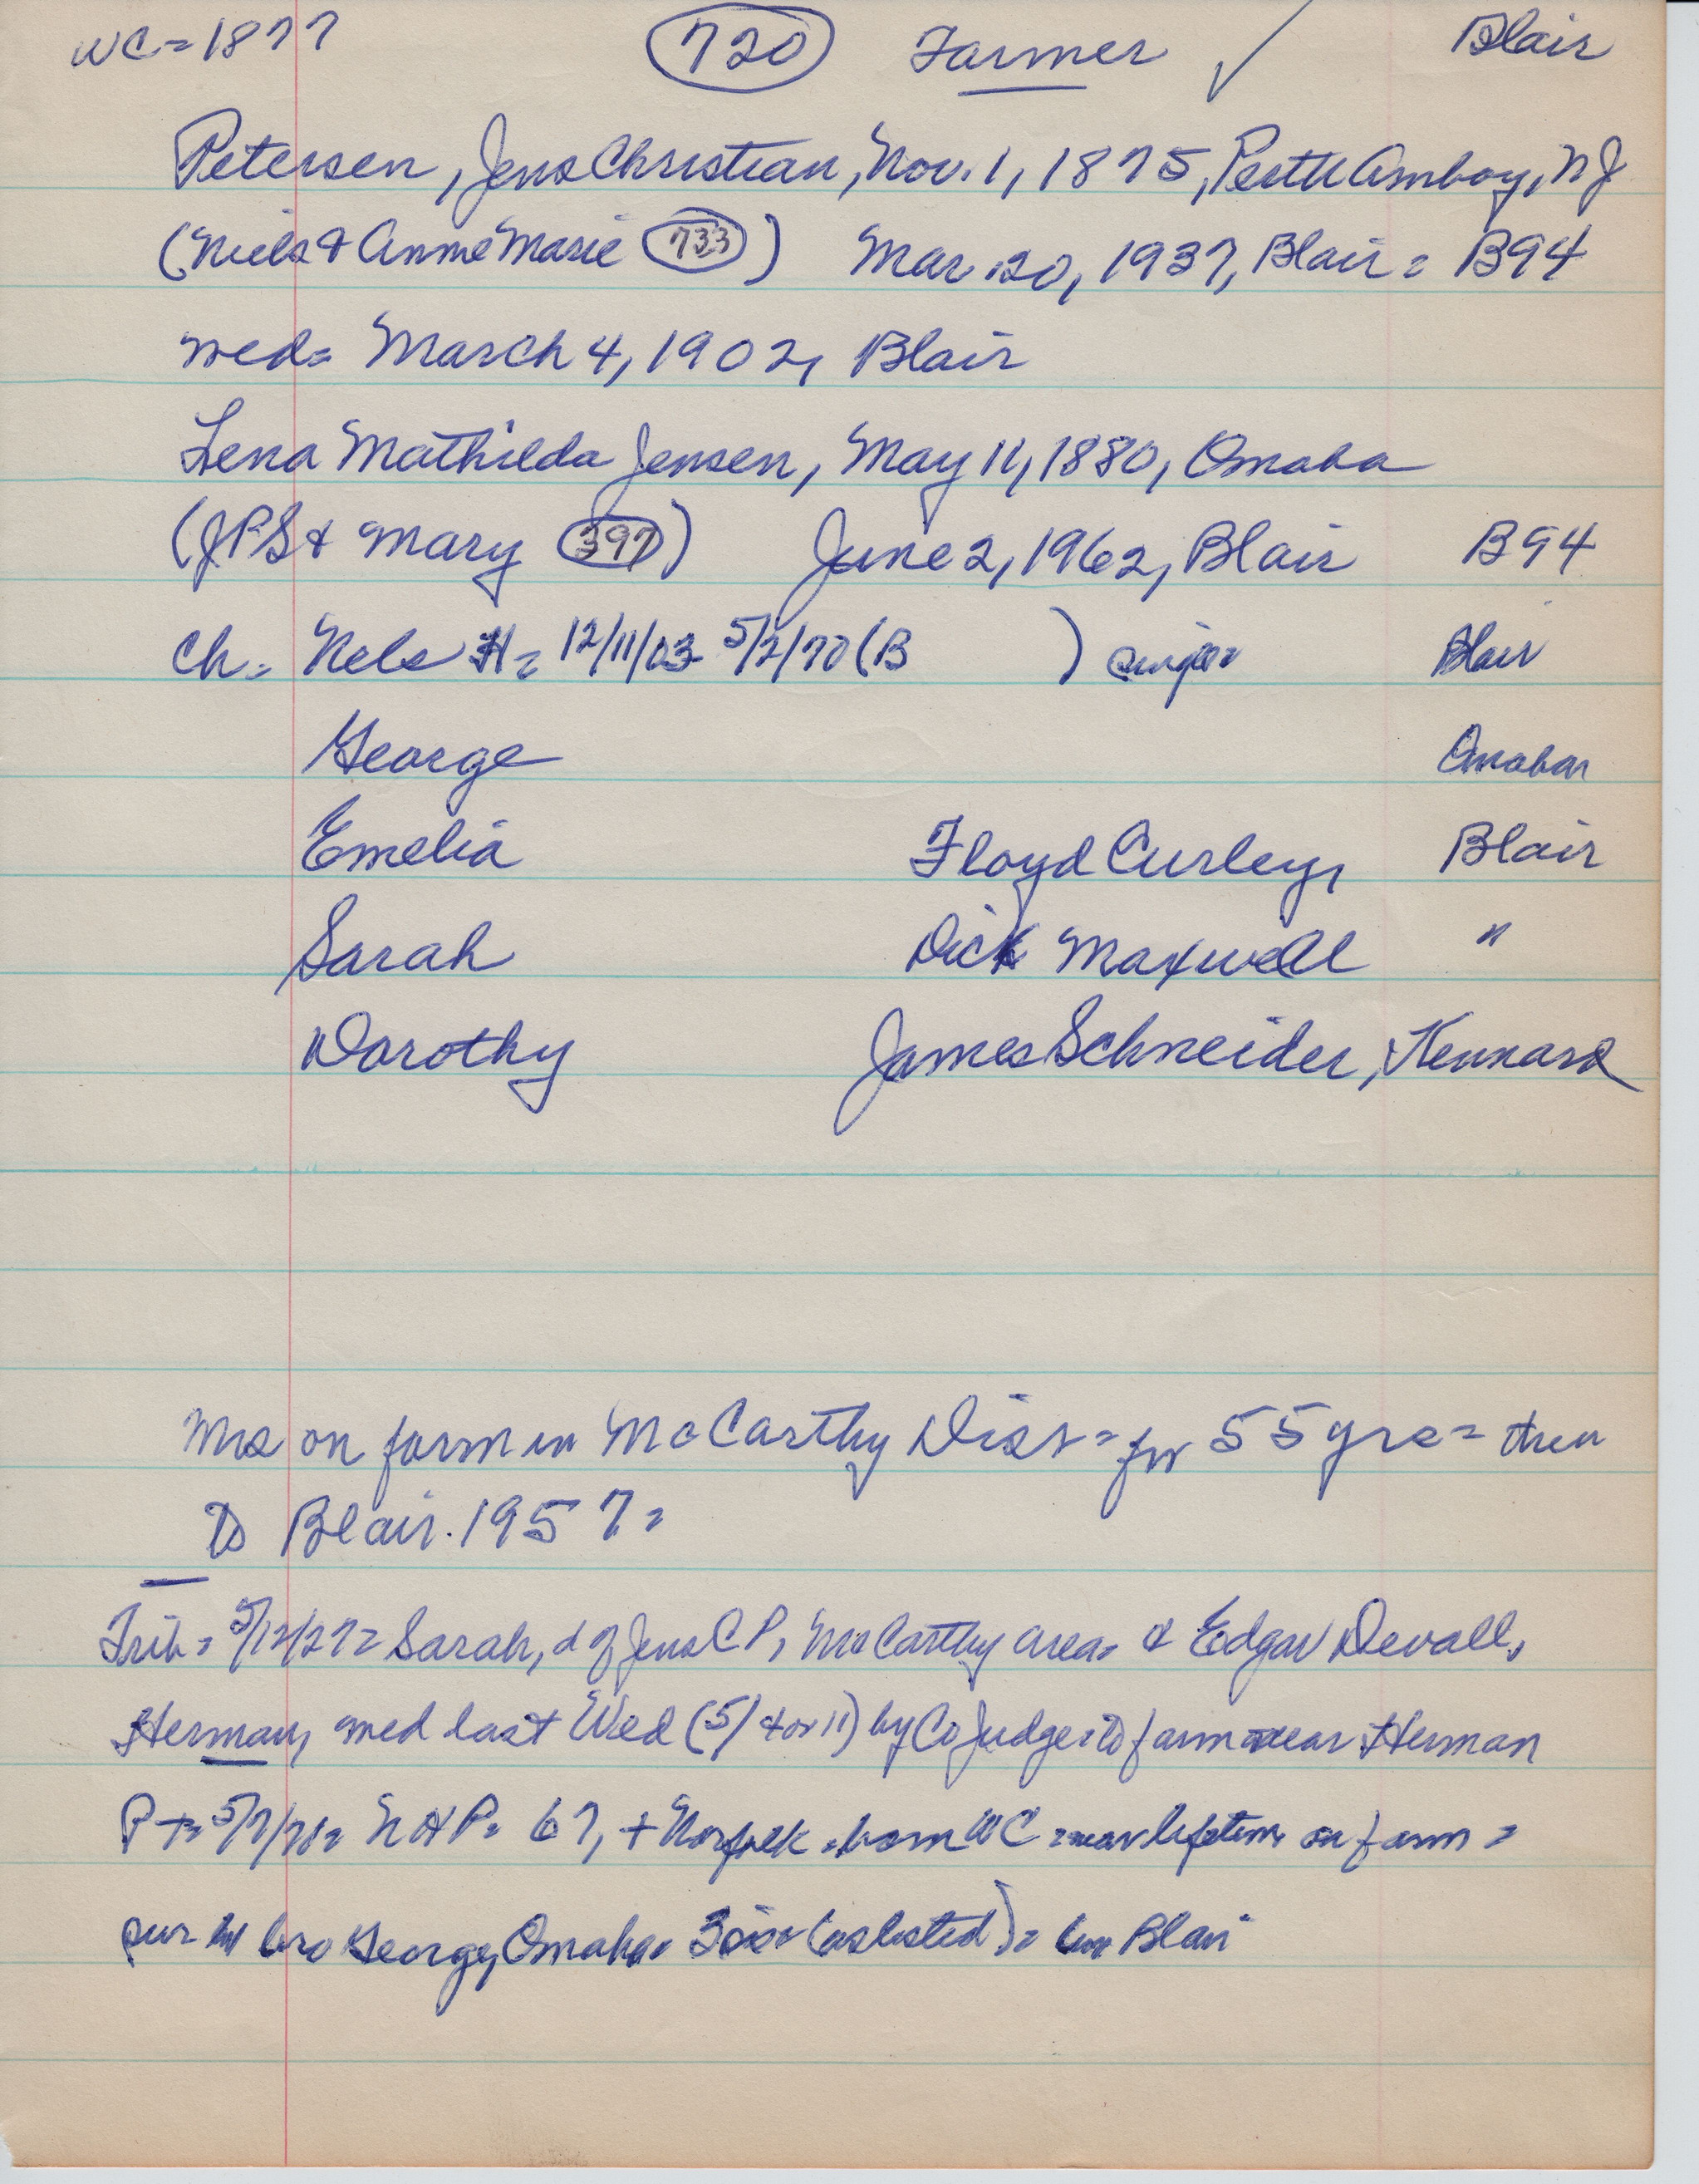 WC = 1877 720 Farmer ✓ Blair
Petersen, Jens Christian, Nov. 1, 1875, Perth Amboy, NJ
(Niels & Anne Marie 733) Mar. 20, 1937, Blair = B94
med = March 4, 1902, Blair
Lena Mathilda Jensen, May 11, 1880, Omaha
(JPS & Mary 397) June 2, 1962, Blair B94
Ch = Nels H = 12/11/03 - 5/2/70 (B ) single Blair
George Omaha
Emelia Floyd Curley, Blair
Sarah Dick Maxwell "
Dorothy James Schneider, Kennard
Mrs on farm in McCarthy Dist = for 55 yrs = then
to Blair. 1957 =
Trib = 5/12/27 = Sarah, d of Jens C P, McCarthy area = & Edgar Devall,
Herman, med last Wed (5/4 or 11) by Co Judge = to farm near Herman
P T = 5/7/70 = N H P = 67, + Norfolk = born WC = near lifetime on farm =
sur by bro George, Omaha = 3 sis (as listed) = Blair